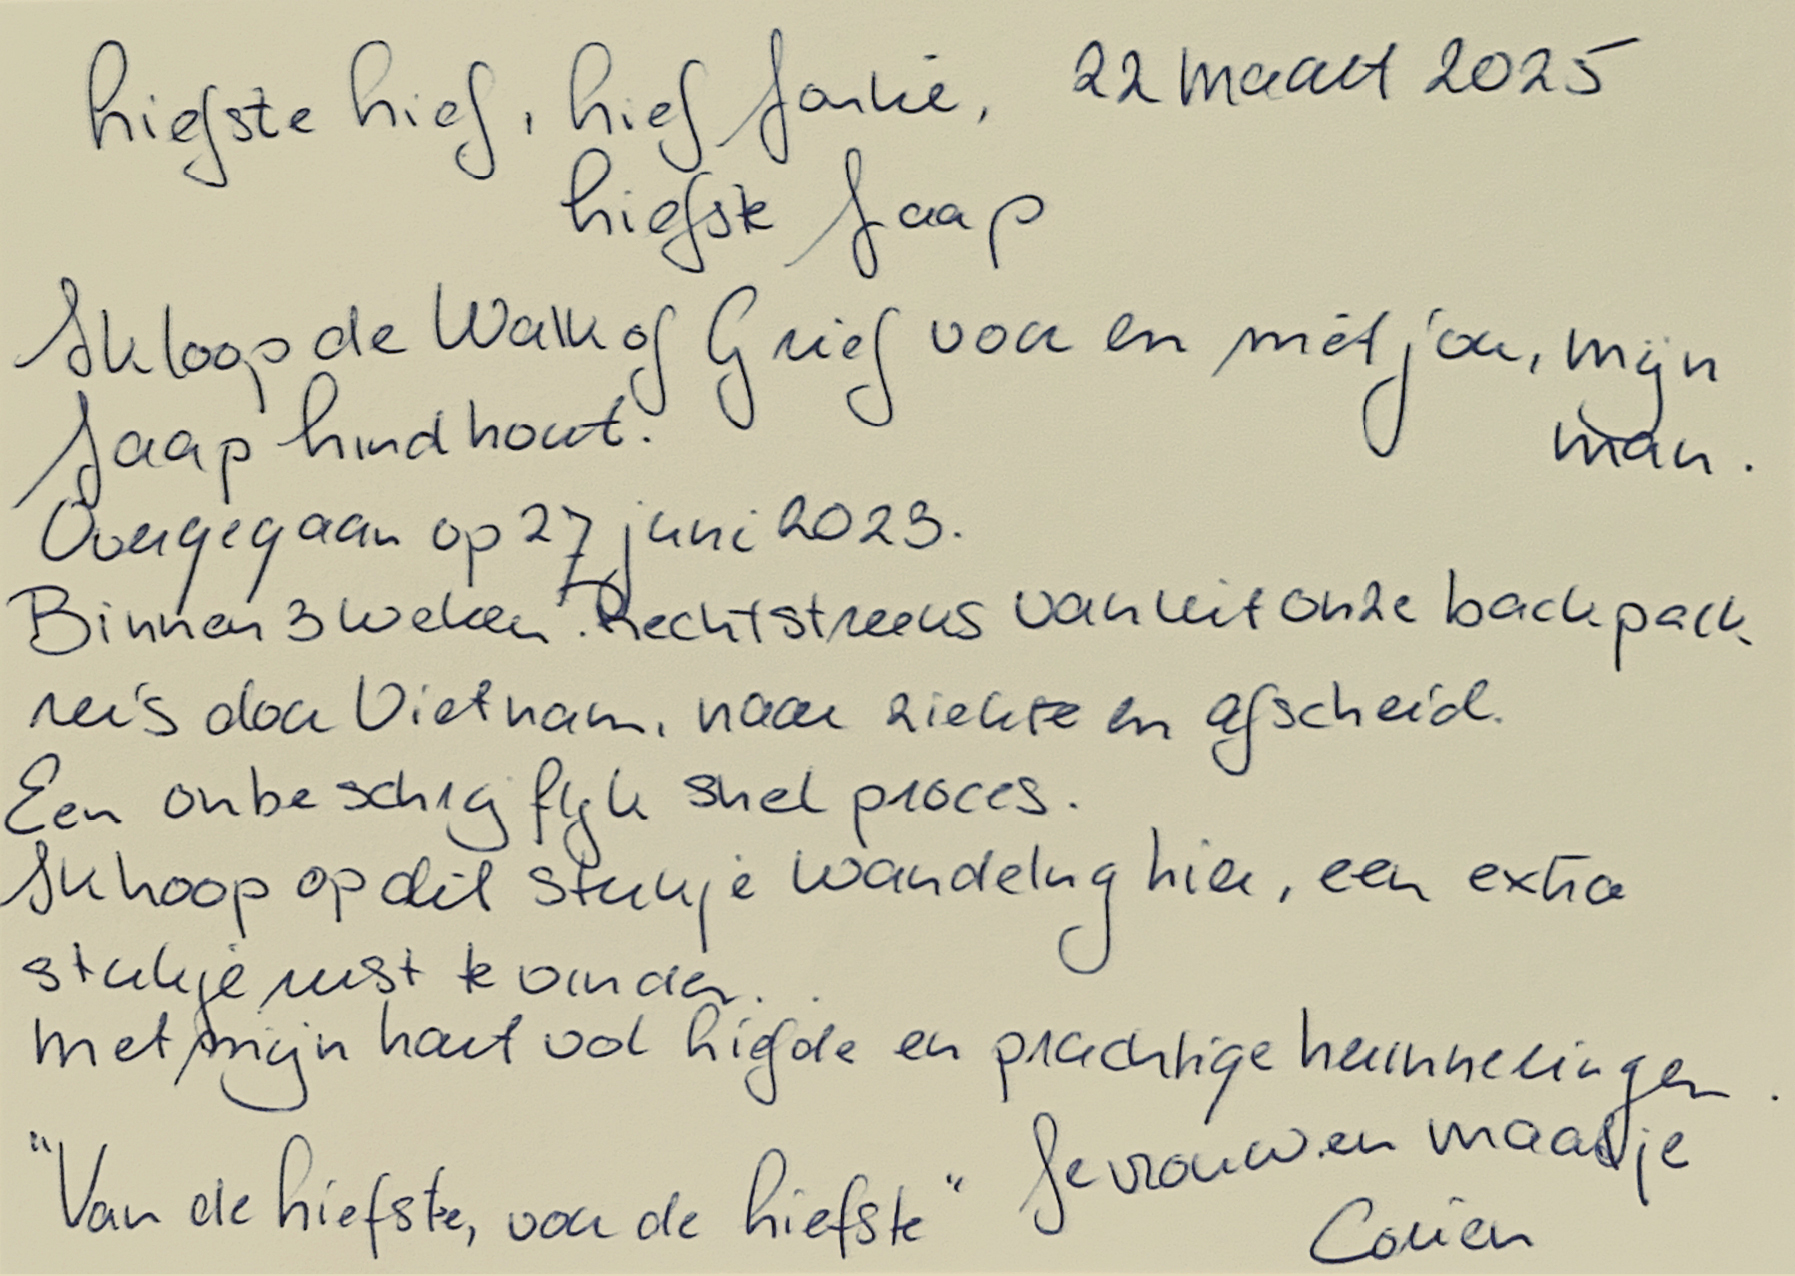 Liefste Lief, Lief Jaapie, 22 maart 2025
Liefste Jaap
Ik loop de Walk of Grief voor en mét jou, mijn
man.
Jaap Lindhout.
Overgegaan op 27 juni 2023.
Binnen 3 weken. Rechtstreeks vanuit onze backpack
reis door Vietnam, naar ziekte en afscheid.
Een onbeschrijflijk snel proces.
Ik hoop op dit stukje wandeling hier, een extra
stukje rust te vinden.
Met mijn hart vol liefde en prachtige herinneringen.
"Van de Liefste, voor de Liefste" Je vrouw en maatje
Corien